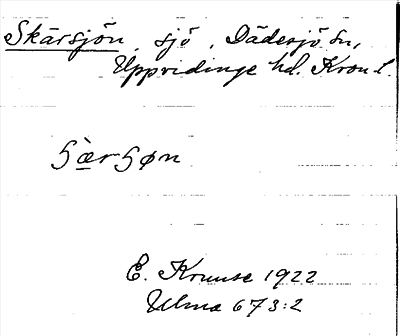 Skärsjön, sjö, Dädesjö sn,
Uppvidinge hd. Kron. l.
ʃæ̀rʃøn
E. Kruuse 1922
Ulma 673:2